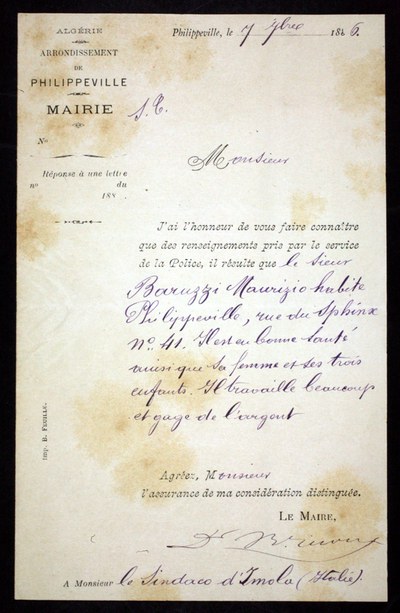 ALGÉRIE
ARRONDISSEMENT
DE
PHILIPPEVILLE
MAIRIE
N°
Réponse à une lettre
n° du
188
Philippeville, le 7 7bre 1886.
Monsieur
J'ai l'honneur de vous faire connaître
que des renseignements pris par le service
de la Police, il résulte que le sieur
Baruzzi Maurizio habite
Philippeville, rue du Sphinx
N° 41. Il est en bonne santé
ainsi que sa femme et ses trois
enfants. Il travaille beaucoup
et gage de l'argent
Agréez, Monsieur
l'assurance de ma considération distinguée.
LE MAIRE,
A Monsieur le Sindaco d'Imola (Italie).
Imp. B. FEUILLE.